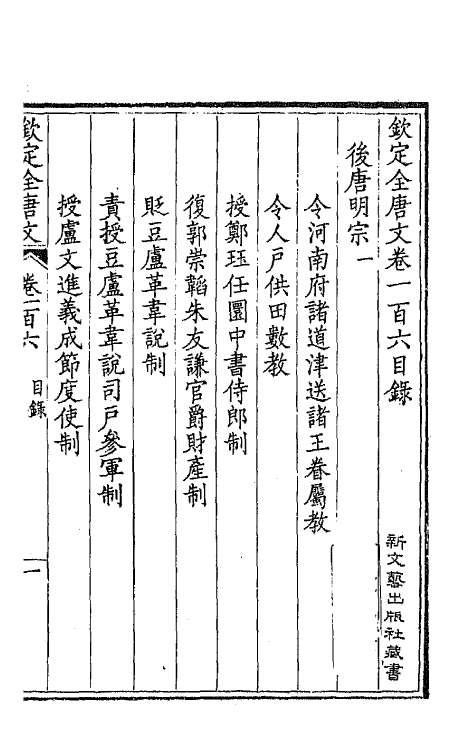 欽定全唐文卷一百六目錄
新文藝出版社藏書
後唐明宗一
令河南府諸道津送諸王眷屬教
令人戶供田數教
授鄭珏任圜中書侍郎制
復郭崇韜朱友謙官爵財產制
貶豆盧革韋說制
責授豆盧革韋說司戶參軍制
授盧文進義成節度使制
欽定全唐文
卷一百六
目錄
一